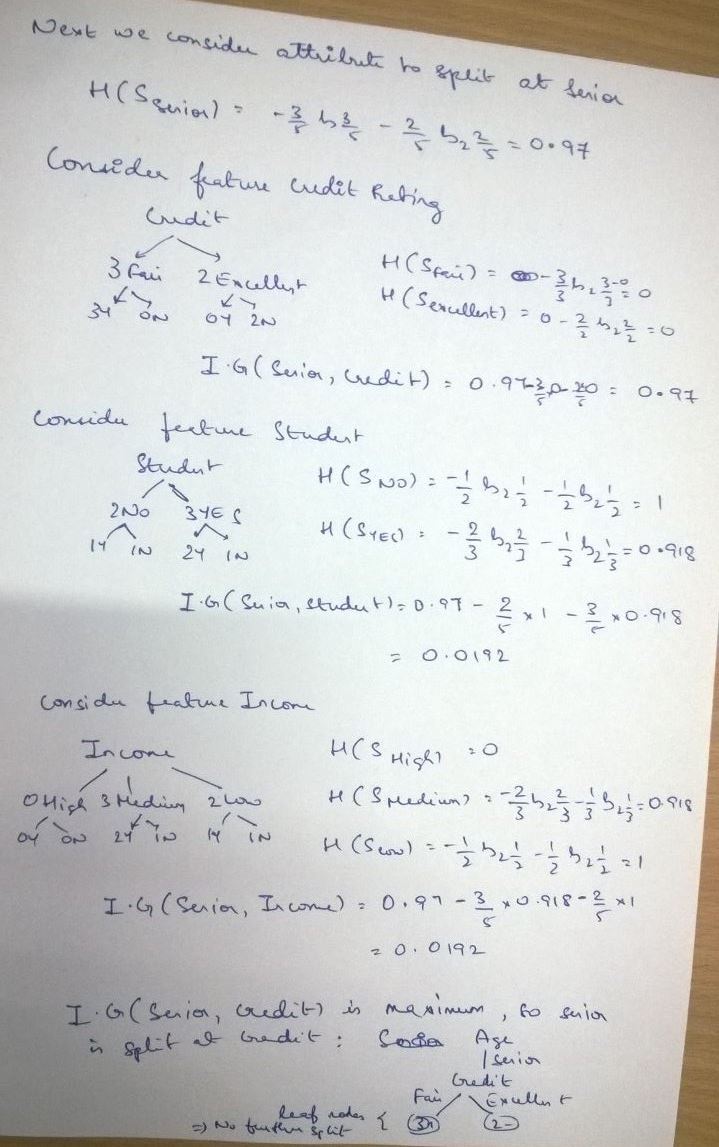 Next we consider attribute to split at Senior
H(S Senior) = -3/5 log 3/5 - 2/5 log2 2/5 = 0.97
Consider feature Credit Rating
Credit
3 Fair 2 Excellent
3Y 0N 0Y 2N
H(S Fair) = -3/3 log2 3/3 - 0 = 0
H(S excellent) = 0 - 2/2 log2 2/2 = 0
I.G(Senior, Credit) = 0.97 - 3/5 × 0 - 2/5 × 0 = 0.97
Consider feature Student
Student
2NO 3YES
1Y 1N 2Y 1N
H(S NO) = -1/2 log2 1/2 - 1/2 log2 1/2 = 1
H(S YES) = -2/3 log2 2/3 - 1/3 log2 1/3 = 0.918
I.G(Senior, student) = 0.97 - 2/5 × 1 - 3/5 × 0.918
= 0.0192
Consider feature Income
Income
0 High 3 Medium 2 Low
0Y 0N 2Y 1N 1Y 1N
H(S High) = 0
H(S Medium) = -2/3 log2 2/3 - 1/3 log2 1/3 = 0.918
H(S Low) = -1/2 log2 1/2 - 1/2 log2 1/2 = 1
I.G(Senior, Income) = 0.97 - 3/5 × 0.918 - 2/5 × 1
= 0.0192
I.G(Senior, Credit) is maximum, so senior
is split at Credit : Age
Senior
Credit
Fair Excellent
leaf nodes { 2-
=> No further split